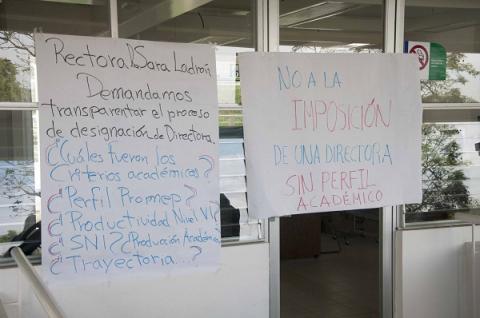 Rectora Dra Sara Ladrón
Demandamos
transparentar el proceso
de designación de Directora.
¿Cuáles fueron los
criterios académicos?
¿Perfil Promep?
¿Productividad Nivel VI?
¿SNI? ¿Producción Académica?
¿Trayectoria...?
NO A LA
IMPOSICIÓN
DE UNA DIRECTORA
SIN PERFIL
ACADÉMICO